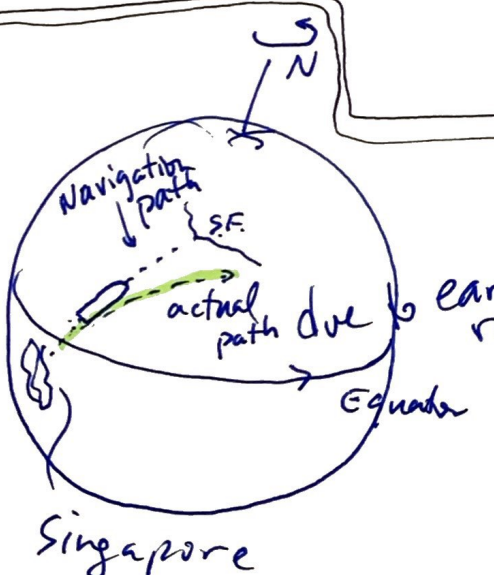 N
Navigation
path
S.F.
actual
path due
Equator
Singapore